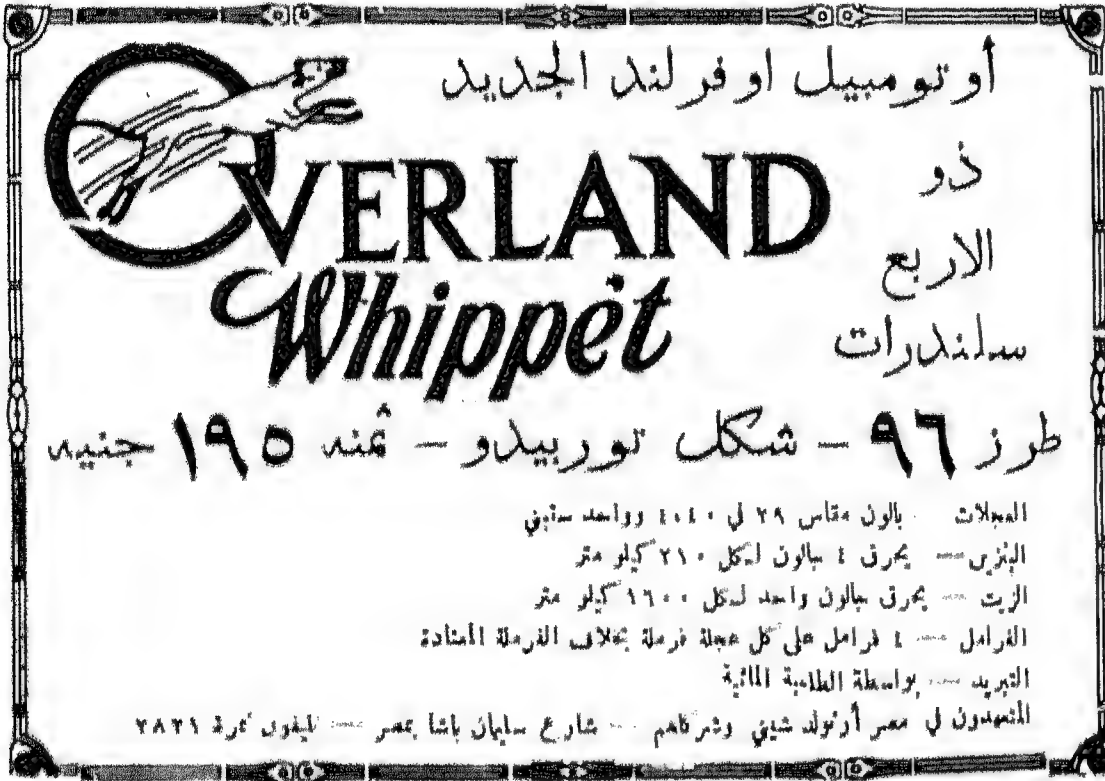 أوتومبيل اوفرلند الجديد
OVERLAND
Whippet
ذو
الاربع
سلندرات
طرز ٩٦ – شكل توربيدو – ثمنه ١٩٥ جنيه
العجلات – بالون مقاس ٢٨ في ٤٠٤٠ وواحد ستبني
البنزين — يحرق ٤ جالون لكل ٢١٠ كيلو متر
الزيت — يحرق جالون واحد لكل ١٦٠٠ كيلو متر
الفرامل — ٤ فرامل على كل عجلة فرملة بخلاف الفرملة المعتادة
التبريد — بواسطة الطلمبة المائية
المتعهدون في مصر أرنولد شيني وشركاهم — شارع سليمان باشا بمصر — تليفون نمرة ٢٨٢١